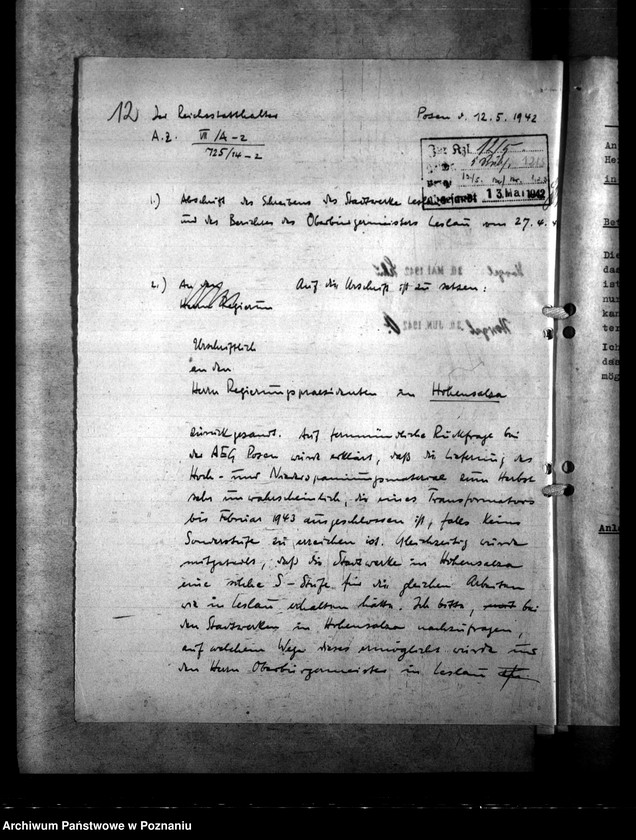 12) Der Reichsstatthalter
Posen d. 12.5.1942
A.Z. VII/A-2
725/14-2
Zur Kzl. 12/5
13. Mai 1942
1.) Abschrift des Schreibens des Stadtwerke Leslau
und des Berichtes des Oberbürgermeisters Leslau vom 27.4.
20. MAI 1942
2.) An den Auf die Urschrift ist zu setzen:
Herrn Regierun
JUN. 1942
Urschriftlich
an den
Herrn Regierungspraesidenten in Hohensalza
zurückgesandt. Auf fernmündliche Rückfrage bei
der AEG Posen wurde erklärt, daß die Lieferung des
Hoch- und Niederspannungsmaterial zum Herbst
sehr unwahrscheinlich, die eines Transformators
bis Februar 1943 ausgeschlossen ist, falls keine
Sonderstufe zu erreichen ist. Gleichzeitig wurde
mitgeteilt, daß die Stadtwerke in Hohensalza
eine solche S-Stufe für die gleichen Arbeiten
wie in Leslau erhalten hätte. Ich bitte, bei
den Stadtwerken in Hohensalza nachzufragen,
auf welchem Wege dieses ermöglicht wurde und
den Herrn Oberbürgermeister in Leslau
An
He
in
Bet
Die
das
ist
nur
kan
ter
Ich
das
mög
Anla
Archiwum Państwowe w Poznaniu